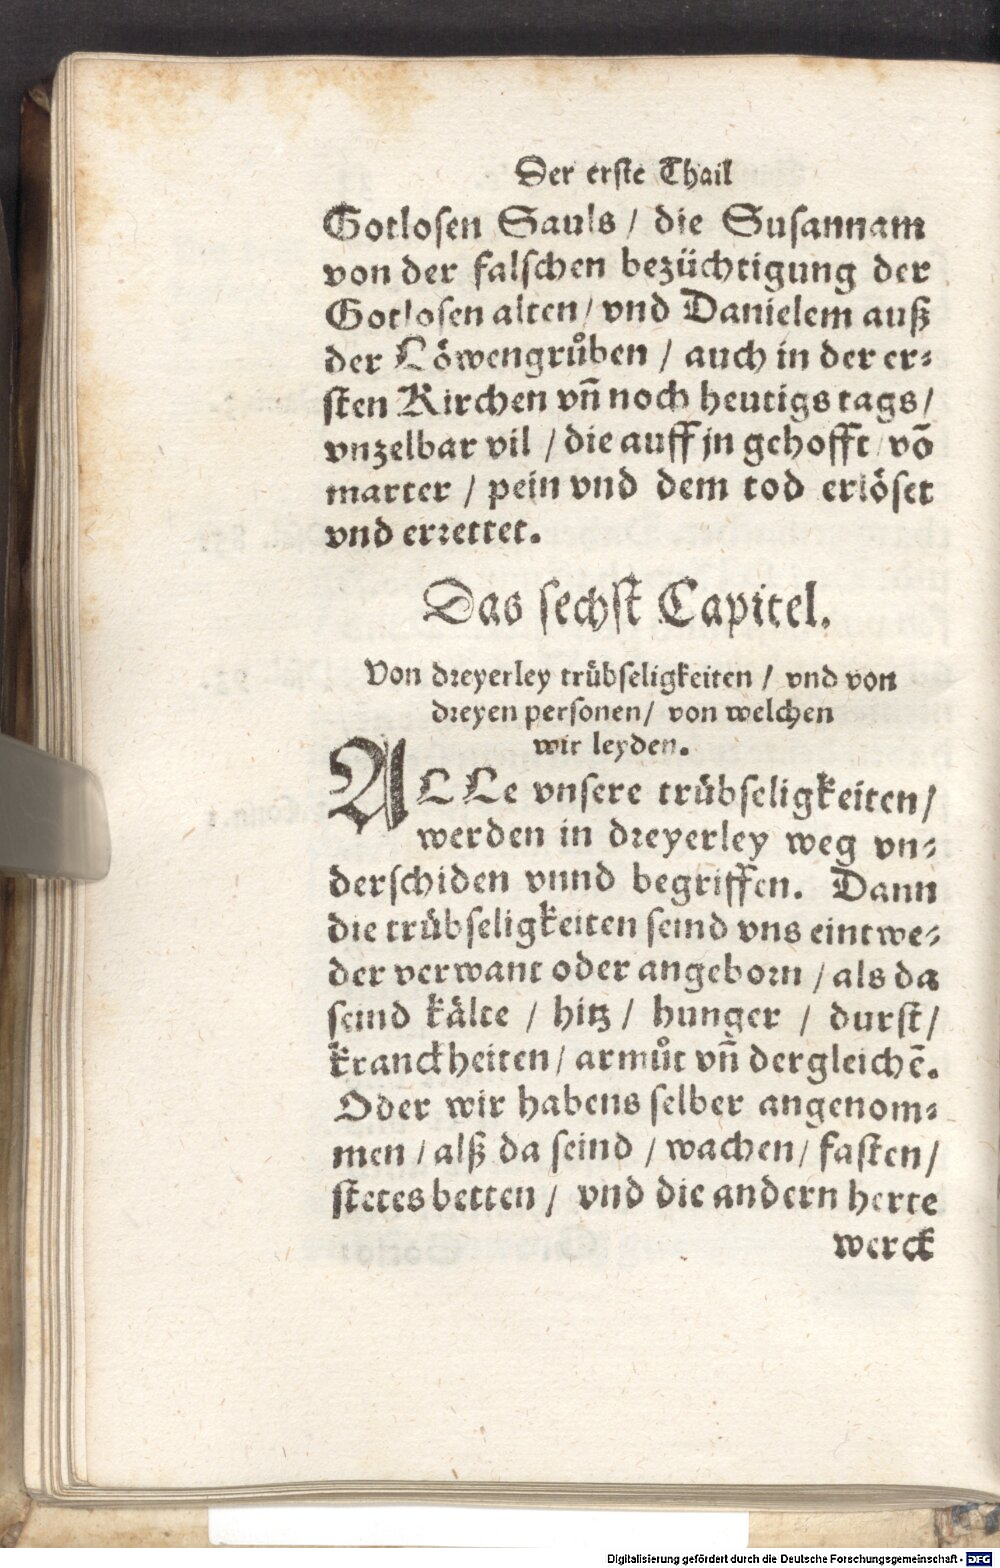 Der erste Thail
Gotlosen Sauls / die Susannam
von der falschen bezüchtigung der
Gotlosen alten / vnd Danielem auß
der Löwengrůben / auch in der er⸗
sten Kirchen vn̄ noch heutigs tags /
vnzelbar vil / die auff jn gehofft / vō
marter / pein vnd dem tod erlöset
vnd errettet.
Das sechst Capitel.
Von dreyerley trübseligkeiten / vnd von
dreyen personen / von welchen
wir leyden.
ALLe vnsere trübseligkeiten /
werden in dreyerley weg vn⸗
derschiden vnnd begriffen. Dann
die trübseligkeiten seind vns eintwe⸗
der verwant oder angeborn / als da
seind kälte / hitz / hunger / durst /
kranckheiten / armůt vn̄ dergleichē.
Oder wir habens selber angenom⸗
men / alß da seind / wachen / fasten /
stetes betten / vnd die andern herte
werck
Digitalisierung gefördert durch die Deutsche Forschungsgemeinschaft - DFG